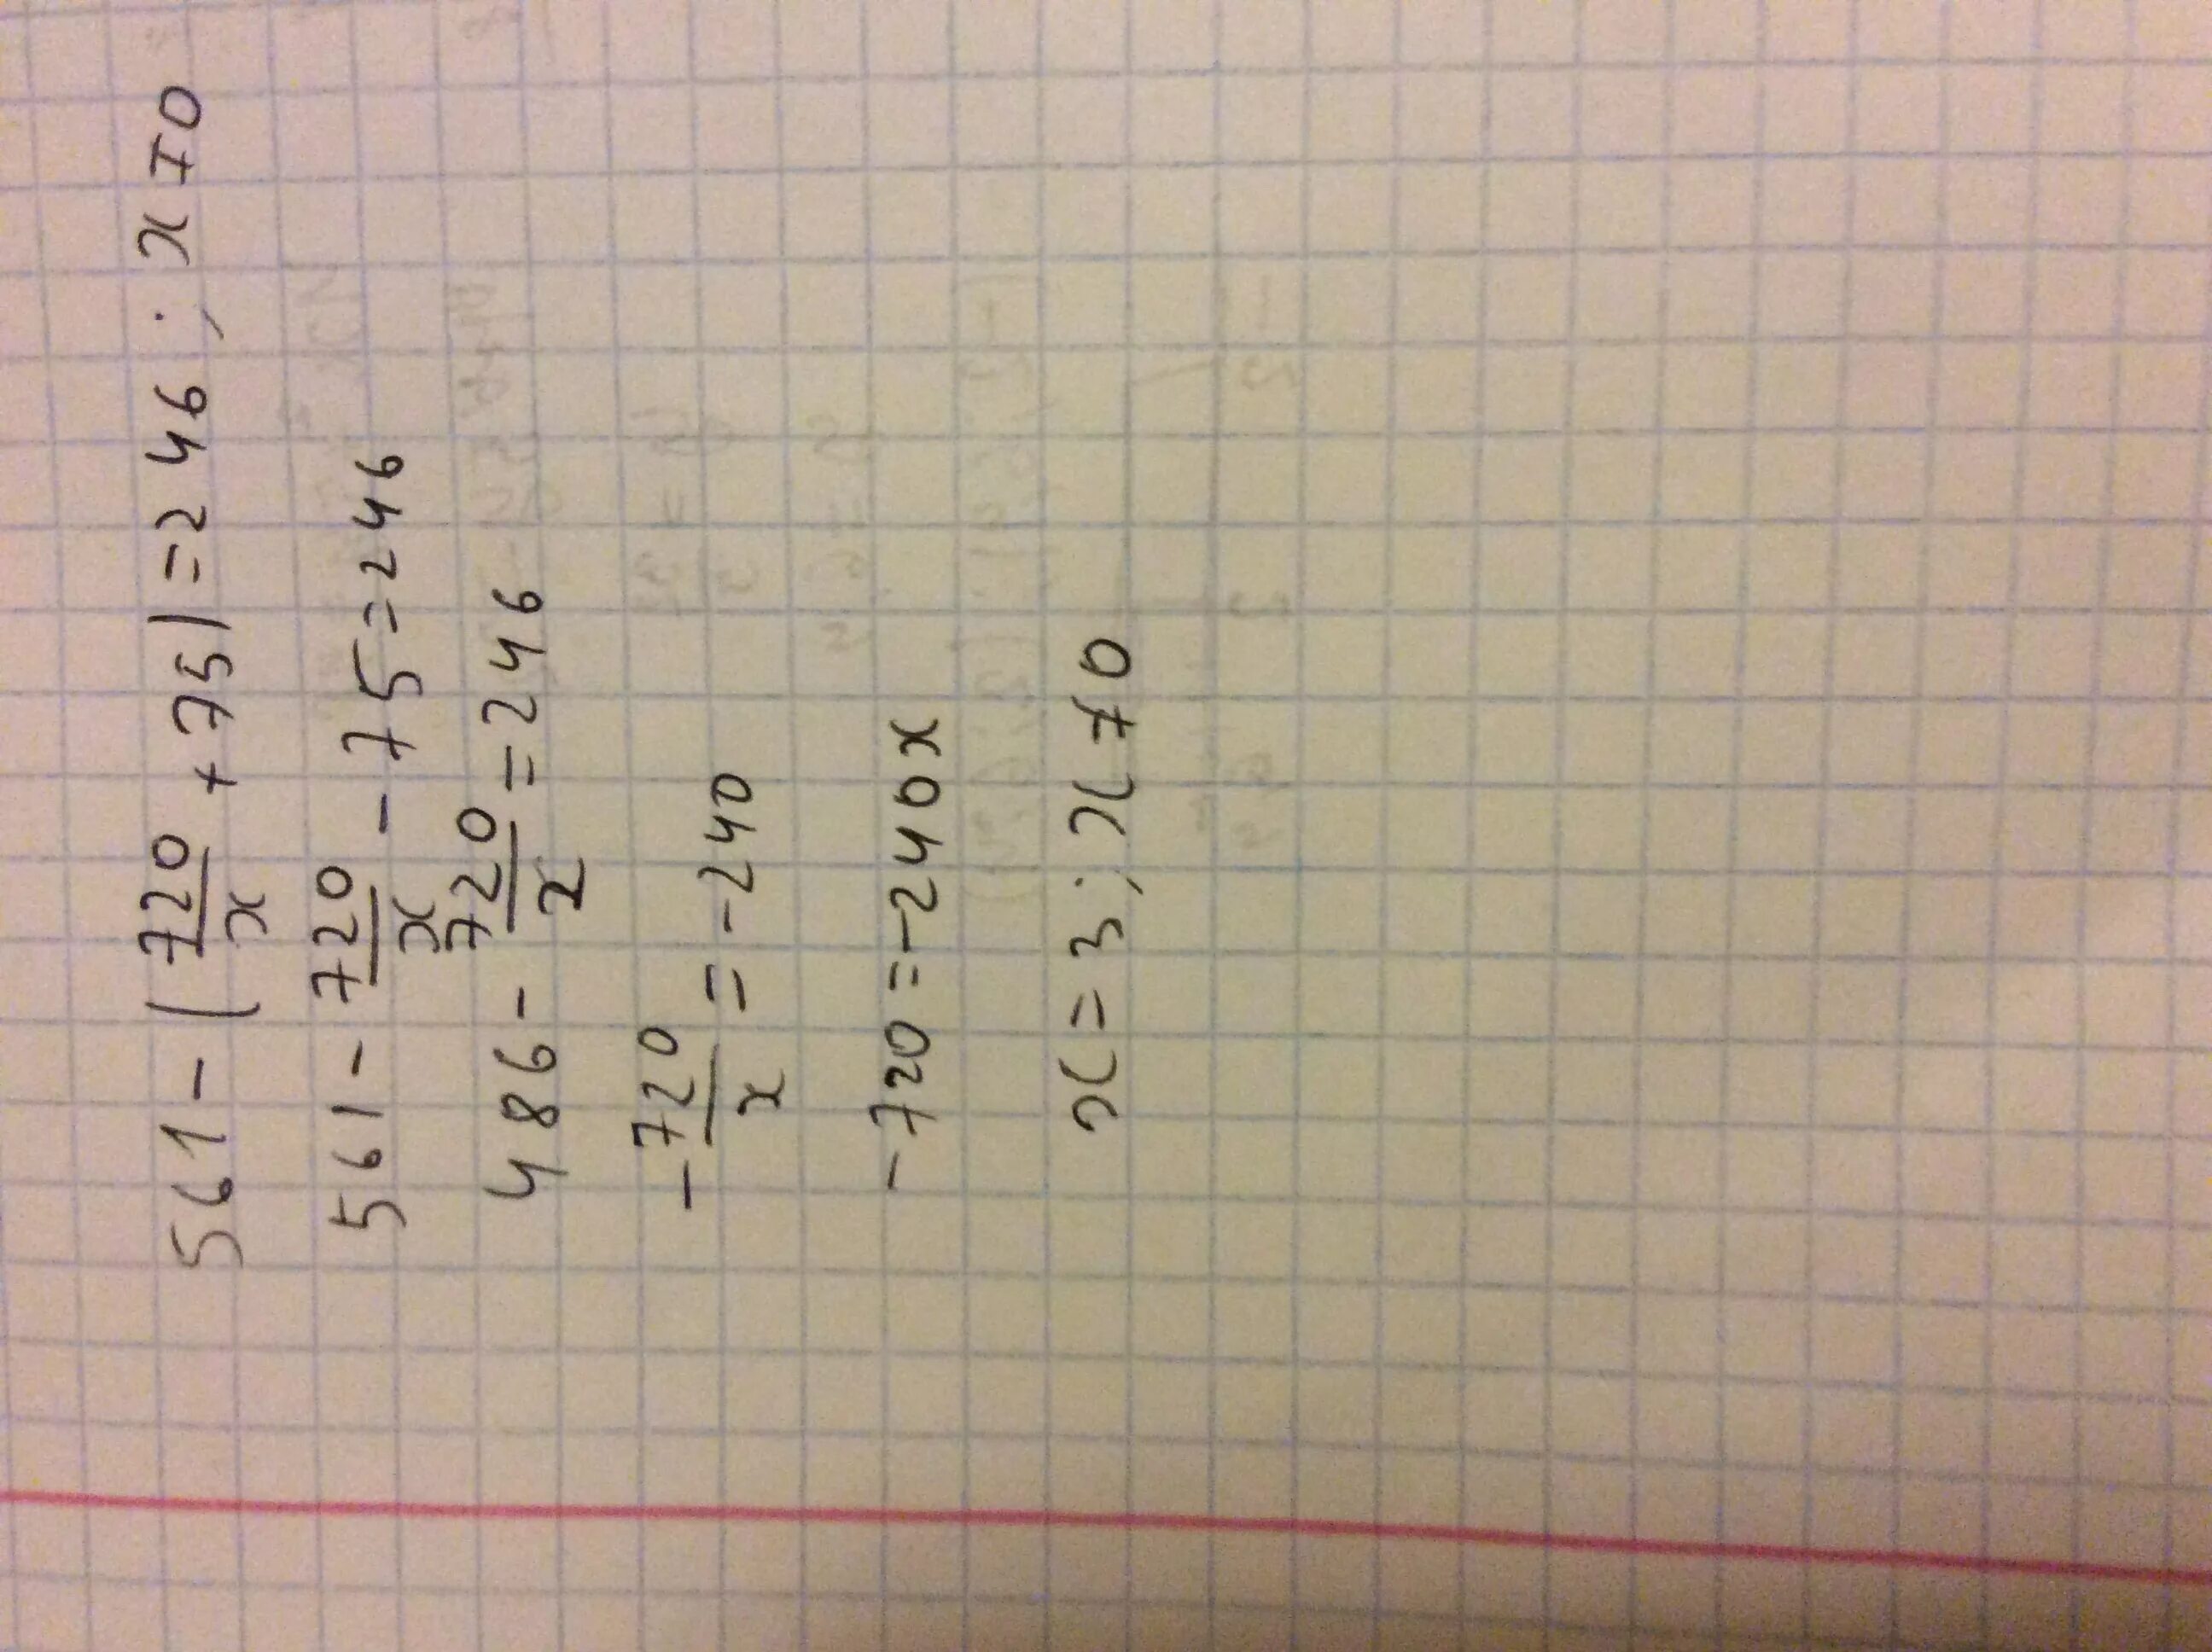 561 - (720/x + 75) = 246; x ≠ 0
561 - 720/x - 75 = 246
486 - 720/x = 246
-720/x = -240
-720 = -240x
x = 3; x ≠ 0